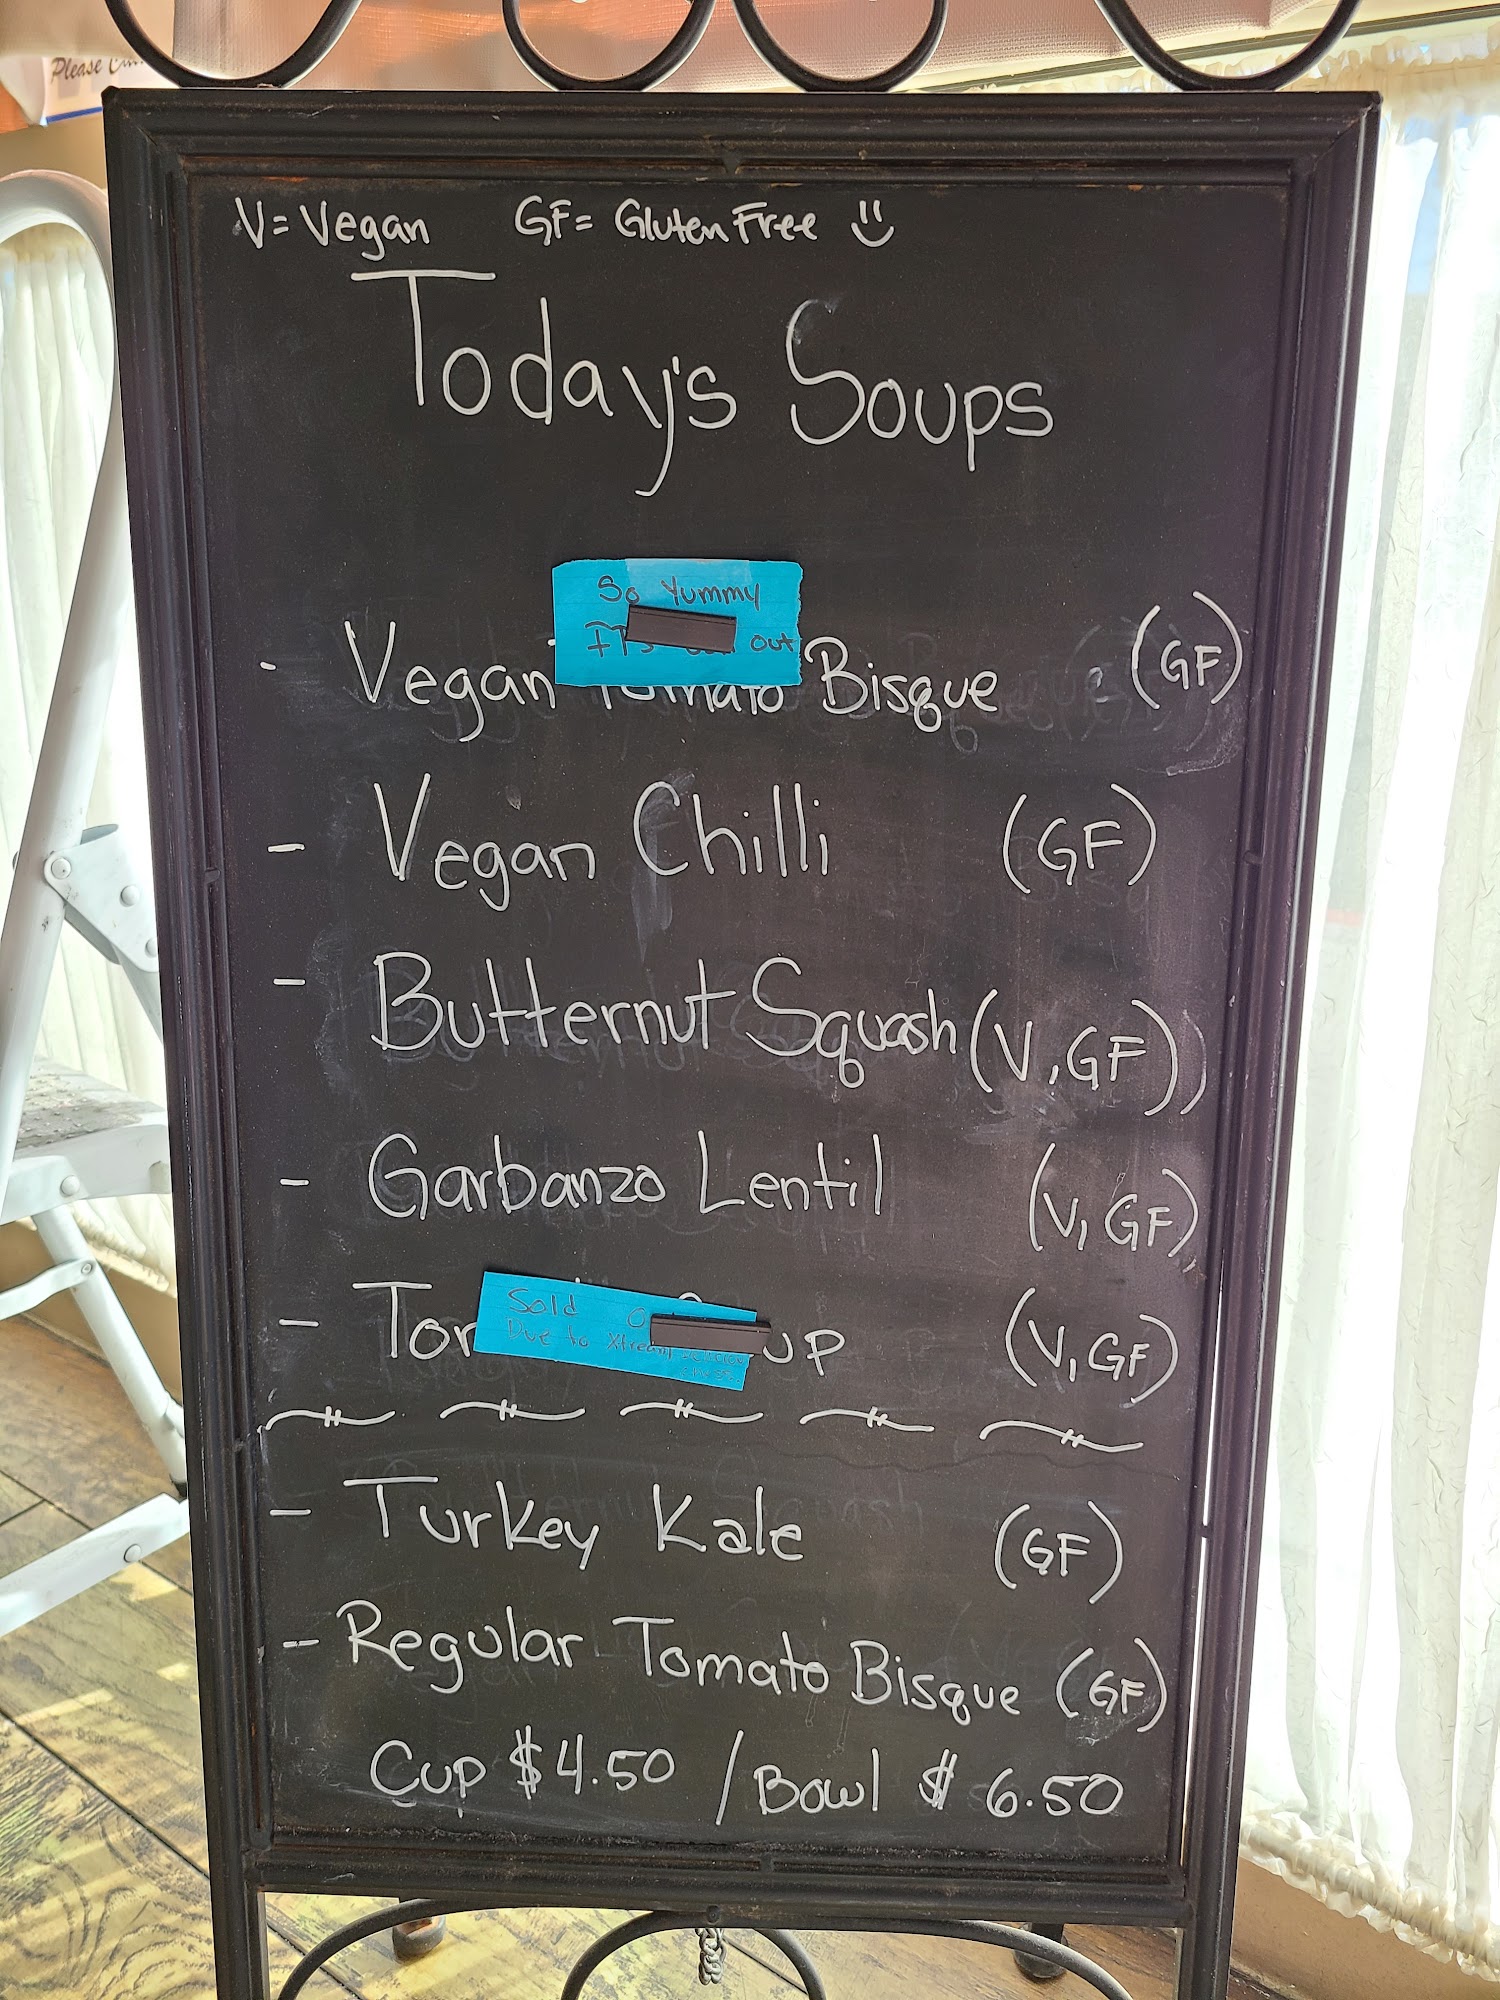 Please
V = Vegan GF = Gluten Free
Today's Soups
So Yummy
IT's out
- Vegan Tomato Bisque (GF)
- Vegan Chilli (GF)
- Butternut Squash (V, GF)
- Garbanzo Lentil (V, GF)
Sold
Due to
- (V, GF)
- Turkey Kale (GF)
- Regular Tomato Bisque (GF)
Cup $4.50 / Bowl $6.50